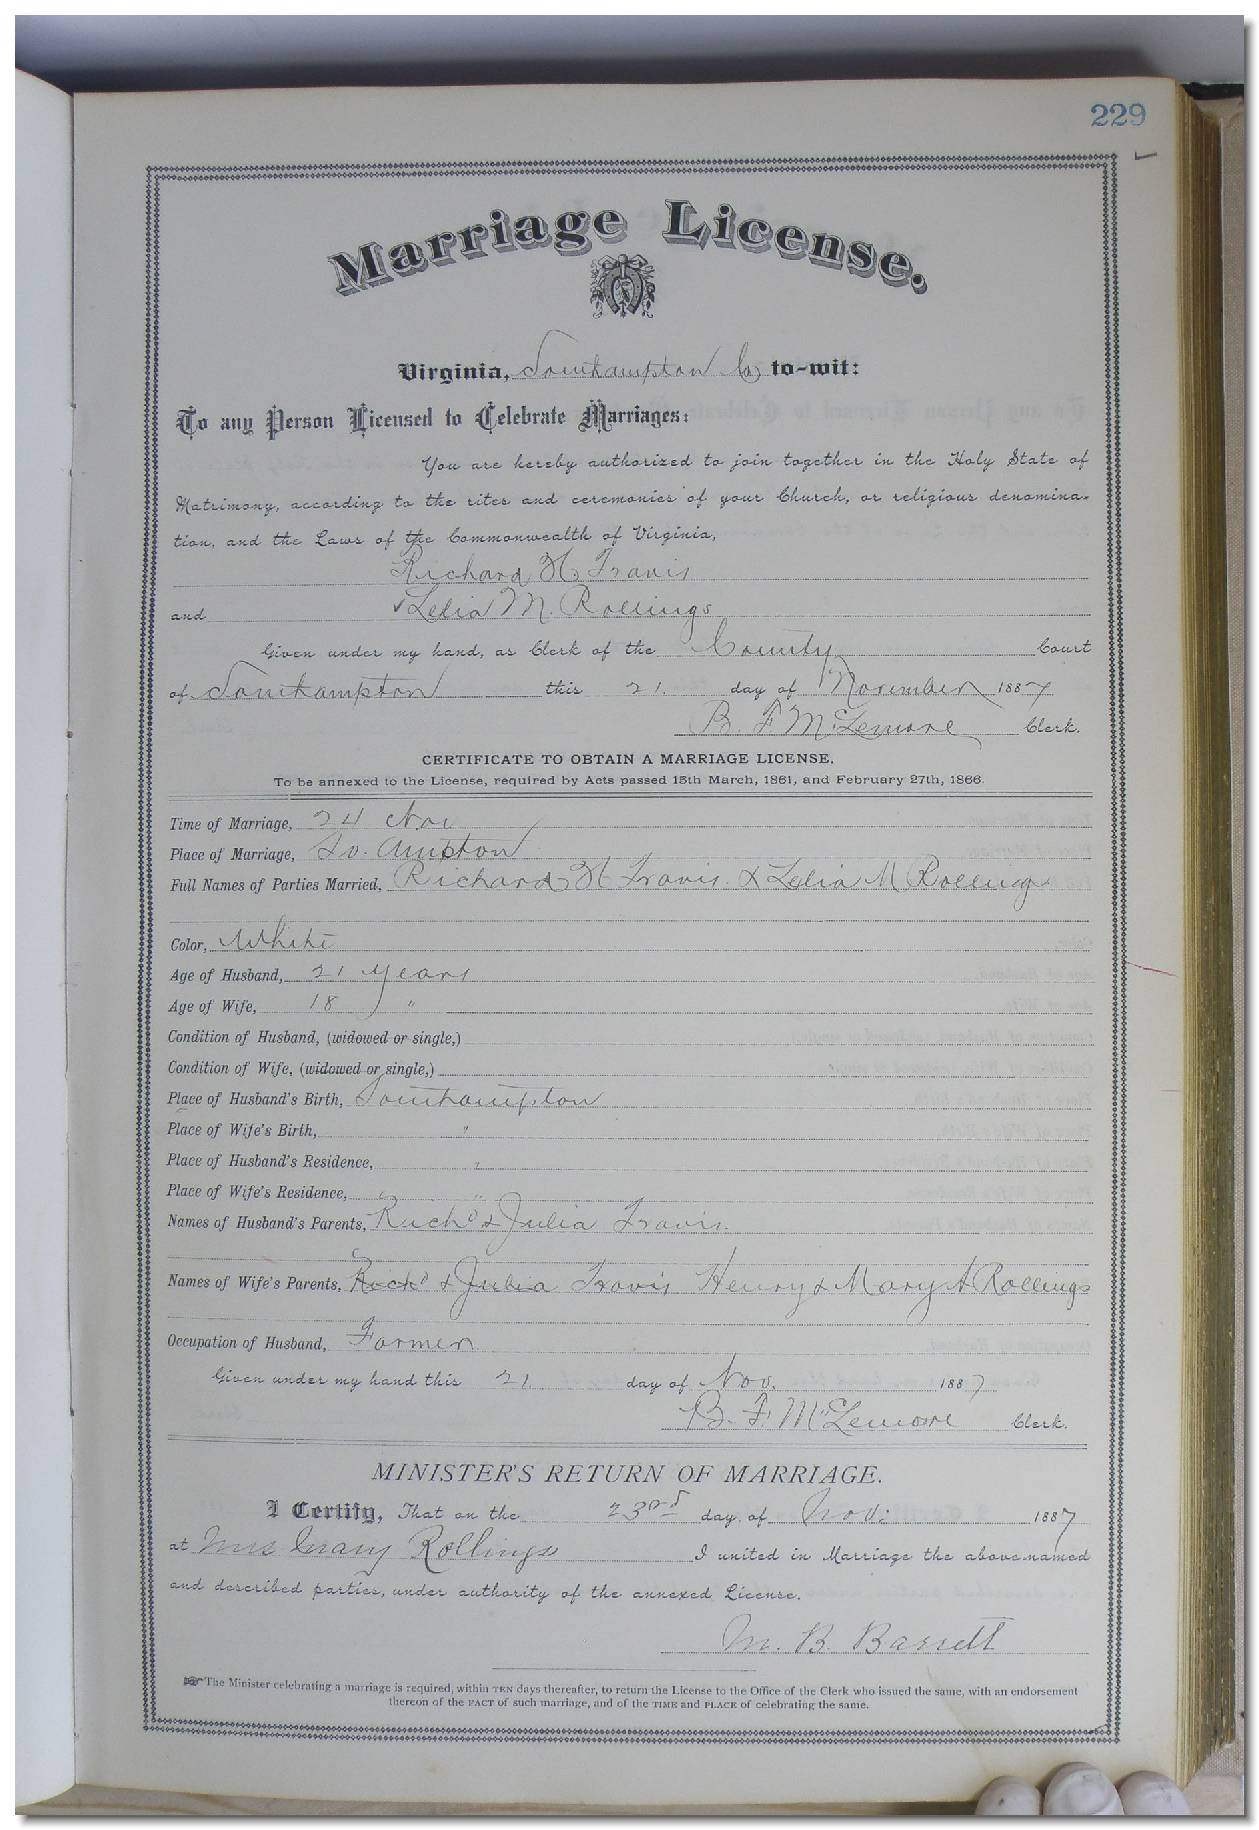 229
Marriage License.
Virginia, Southampton Co, to-wit:
To any Person Licensed to Celebrate Marriages:
You are hereby authorized to join together in the Holy State of
Matrimony, according to the rites and ceremonies of your Church, or religious denomina-
tion, and the Laws of the Commonwealth of Virginia,
Richard H Travis
and Lelia M. Rollings
Given under my hand, as Clerk of the County Court
of Southampton this 21. day of November 1887
B. F. McLemore Clerk.
CERTIFICATE TO OBTAIN A MARRIAGE LICENSE.
To be annexed to the License, required by Acts passed 15th March, 1861, and February 27th, 1866.
Time of Marriage, 24 Nov
Place of Marriage, So.ampton
Full Names of Parties Married, Richard H Travis. & Lelia M Rollings
Color, White
Age of Husband, 21 years
Age of Wife, 18 "
Condition of Husband, (widowed or single,)
Condition of Wife, (widowed or single,)
Place of Husband's Birth, Southampton
Place of Wife's Birth, "
Place of Husband's Residence, "
Place of Wife's Residence, " "
Names of Husband's Parents, Richd & Julia Travis.
Names of Wife's Parents, Richd & Julia Travis Henry & Mary A Rollings
Occupation of Husband, Farmer
Given under my hand this 21 day of Nov. 1887
B. F. McLemore Clerk.
MINISTER'S RETURN OF MARRIAGE.
I Certify, That on the 23rd day of Nov: 1887
at Mrs Mary Rollings I united in Marriage the above-named
and described parties, under authority of the annexed License.
M. B. Barrett
The Minister celebrating a marriage is required, within TEN days thereafter, to return the License to the Office of the Clerk who issued the same, with an endorsement
thereon of the FACT of such marriage, and of the TIME and PLACE of celebrating the same.